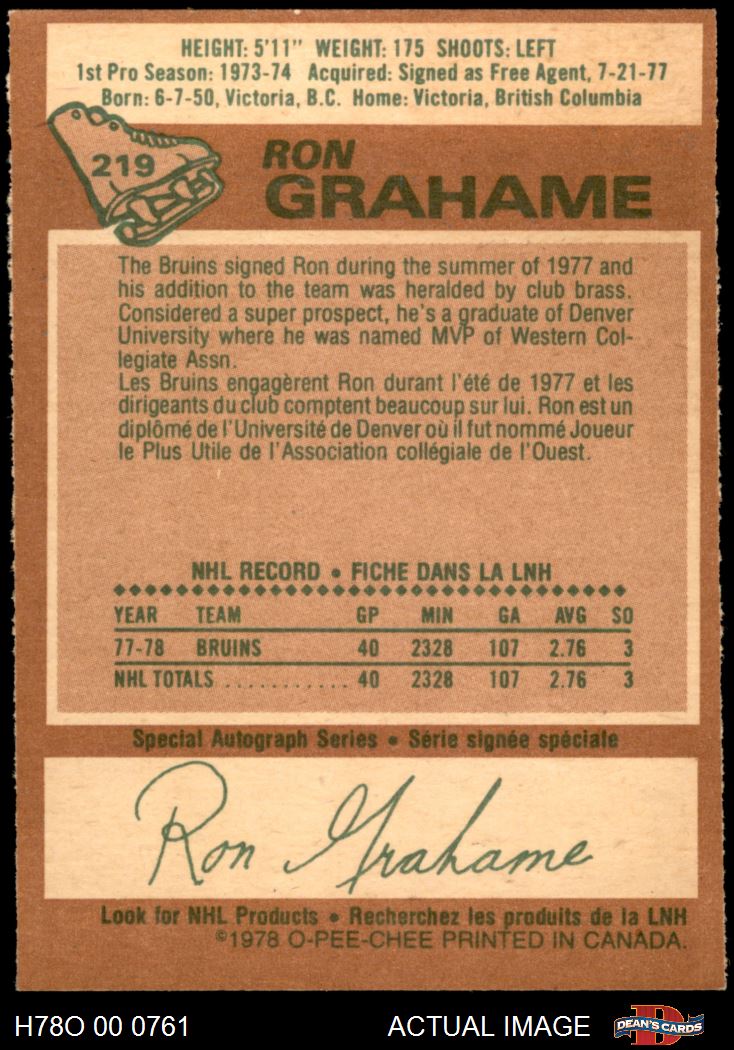 HEIGHT: 5'11" WEIGHT: 175 SHOOTS: LEFT
1st Pro Season: 1973-74 Acquired: Signed as Free Agent, 7-21-77
Born: 6-7-50, Victoria, B.C. Home: Victoria, British Columbia
219
RON
GRAHAME
The Bruins signed Ron during the summer of 1977 and
his addition to the team was heralded by club brass.
Considered a super prospect, he's a graduate of Denver
University where he was named MVP of Western Col-
legiate Assn.
Les Bruins engagèrent Ron durant l'été de 1977 et les
dirigeants du club comptent beaucoup sur lui. Ron est un
diplômé de l'Université de Denver où il fut nommé Joueur
le Plus Utile de l'Association collégiale de l'Ouest.
NHL RECORD • FICHE DANS LA LNH
YEAR TEAM GP MIN GA AVG SO
77-78 BRUINS 40 2328 107 2.76 3
NHL TOTALS ........... 40 2328 107 2.76 3
Special Autograph Series • Série signée spéciale
Ron Grahame
Look for NHL Products • Recherchez les produits de la LNH
©1978 O-PEE-CHEE PRINTED IN CANADA.
H78O 00 0761 ACTUAL IMAGE DEAN'S CARDS